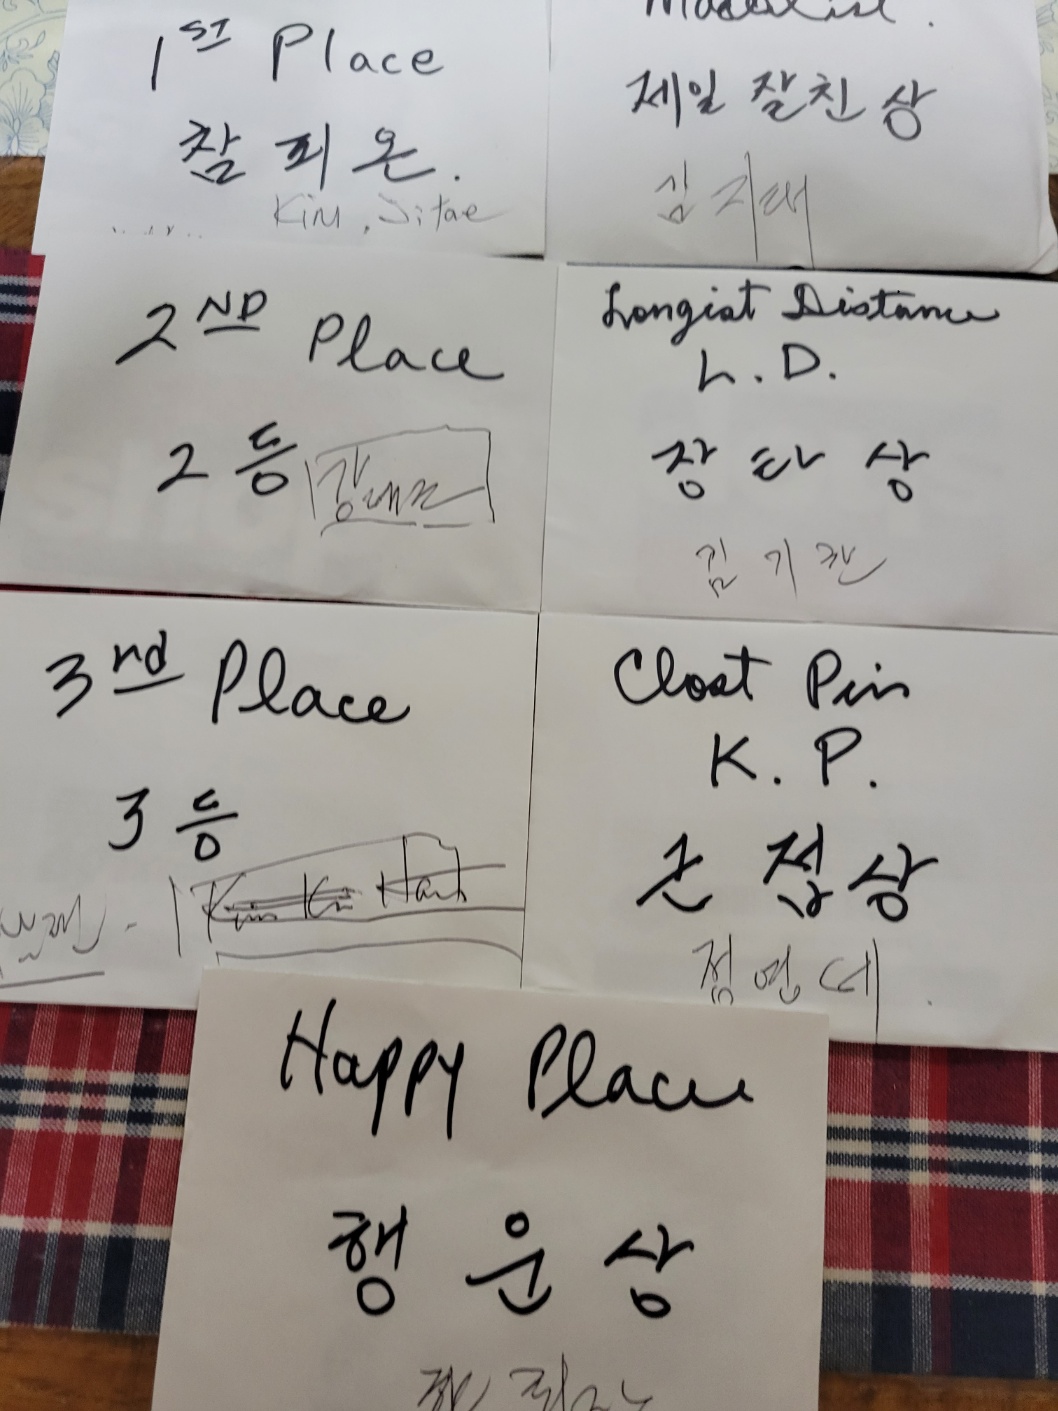 1ST Place
참피온.
Kim, Jitae
Medalist.
제일 잘친상
김지태
2ND Place
2등
Longist Distance
L.D.
장타상
김기환
3rd Place
3등
Kim Ki Hah
Clost Pin
K.P.
근접상
정영
Happy Place
행운상